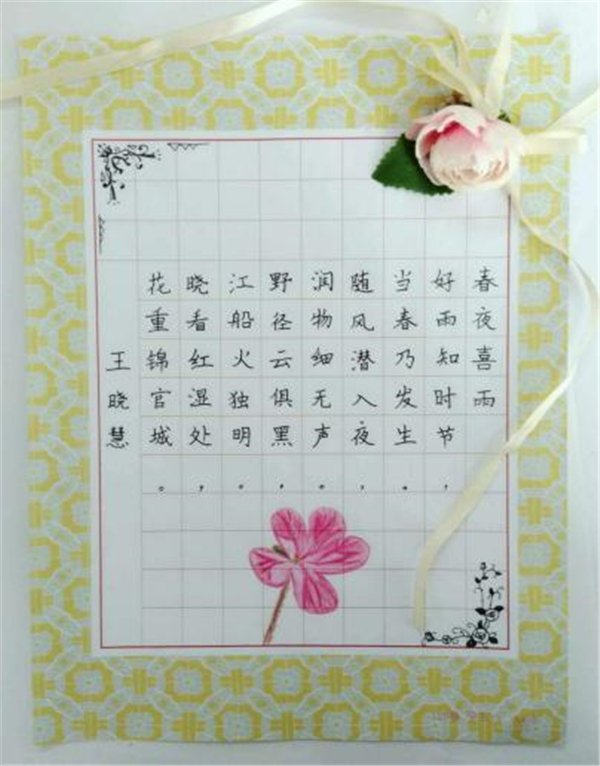 春夜喜雨
好雨知时节，
当春乃发生。
随风潜入夜，
润物细无声。
野径云俱黑，
江船火独明。
晓看红湿处，
花重锦官城。
王晓慧